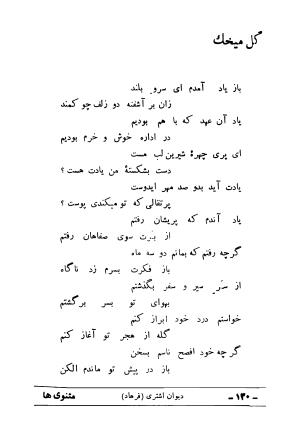 گل میخك
باز یاد آمدم ای سرو بلند
زان بر آشفته دو زلف چو کمند
یاد آن عهد که با هم بودیم
در اداره خوش و خرم بودیم
ای پری چهرهٔ شیرین لب مست
دست بشکستهٔ من یادت هست ؟
یادت آید بدو صد مهر ایدوست
پرتقالی که تو میکندی پوست ؟
یاد آندم که پریشان رفتم
از برت سوی صفاهان رفتم
گرچه رفتم که بمانم دو سه ماه
باز فکرت بسرم زد ناگاه
از سر سیر و سفر بگذشتم
بهوای تو بسر برگشتم
خواستم درد خود ابراز کنم
گله از هجر تو آغاز کنم
گر چه خود افصح ناسم بسخن
باز در پیش تو ماندم الکن
- ۱۴۰ -
دیوان اشتری (فرهاد)
مثنوی ها